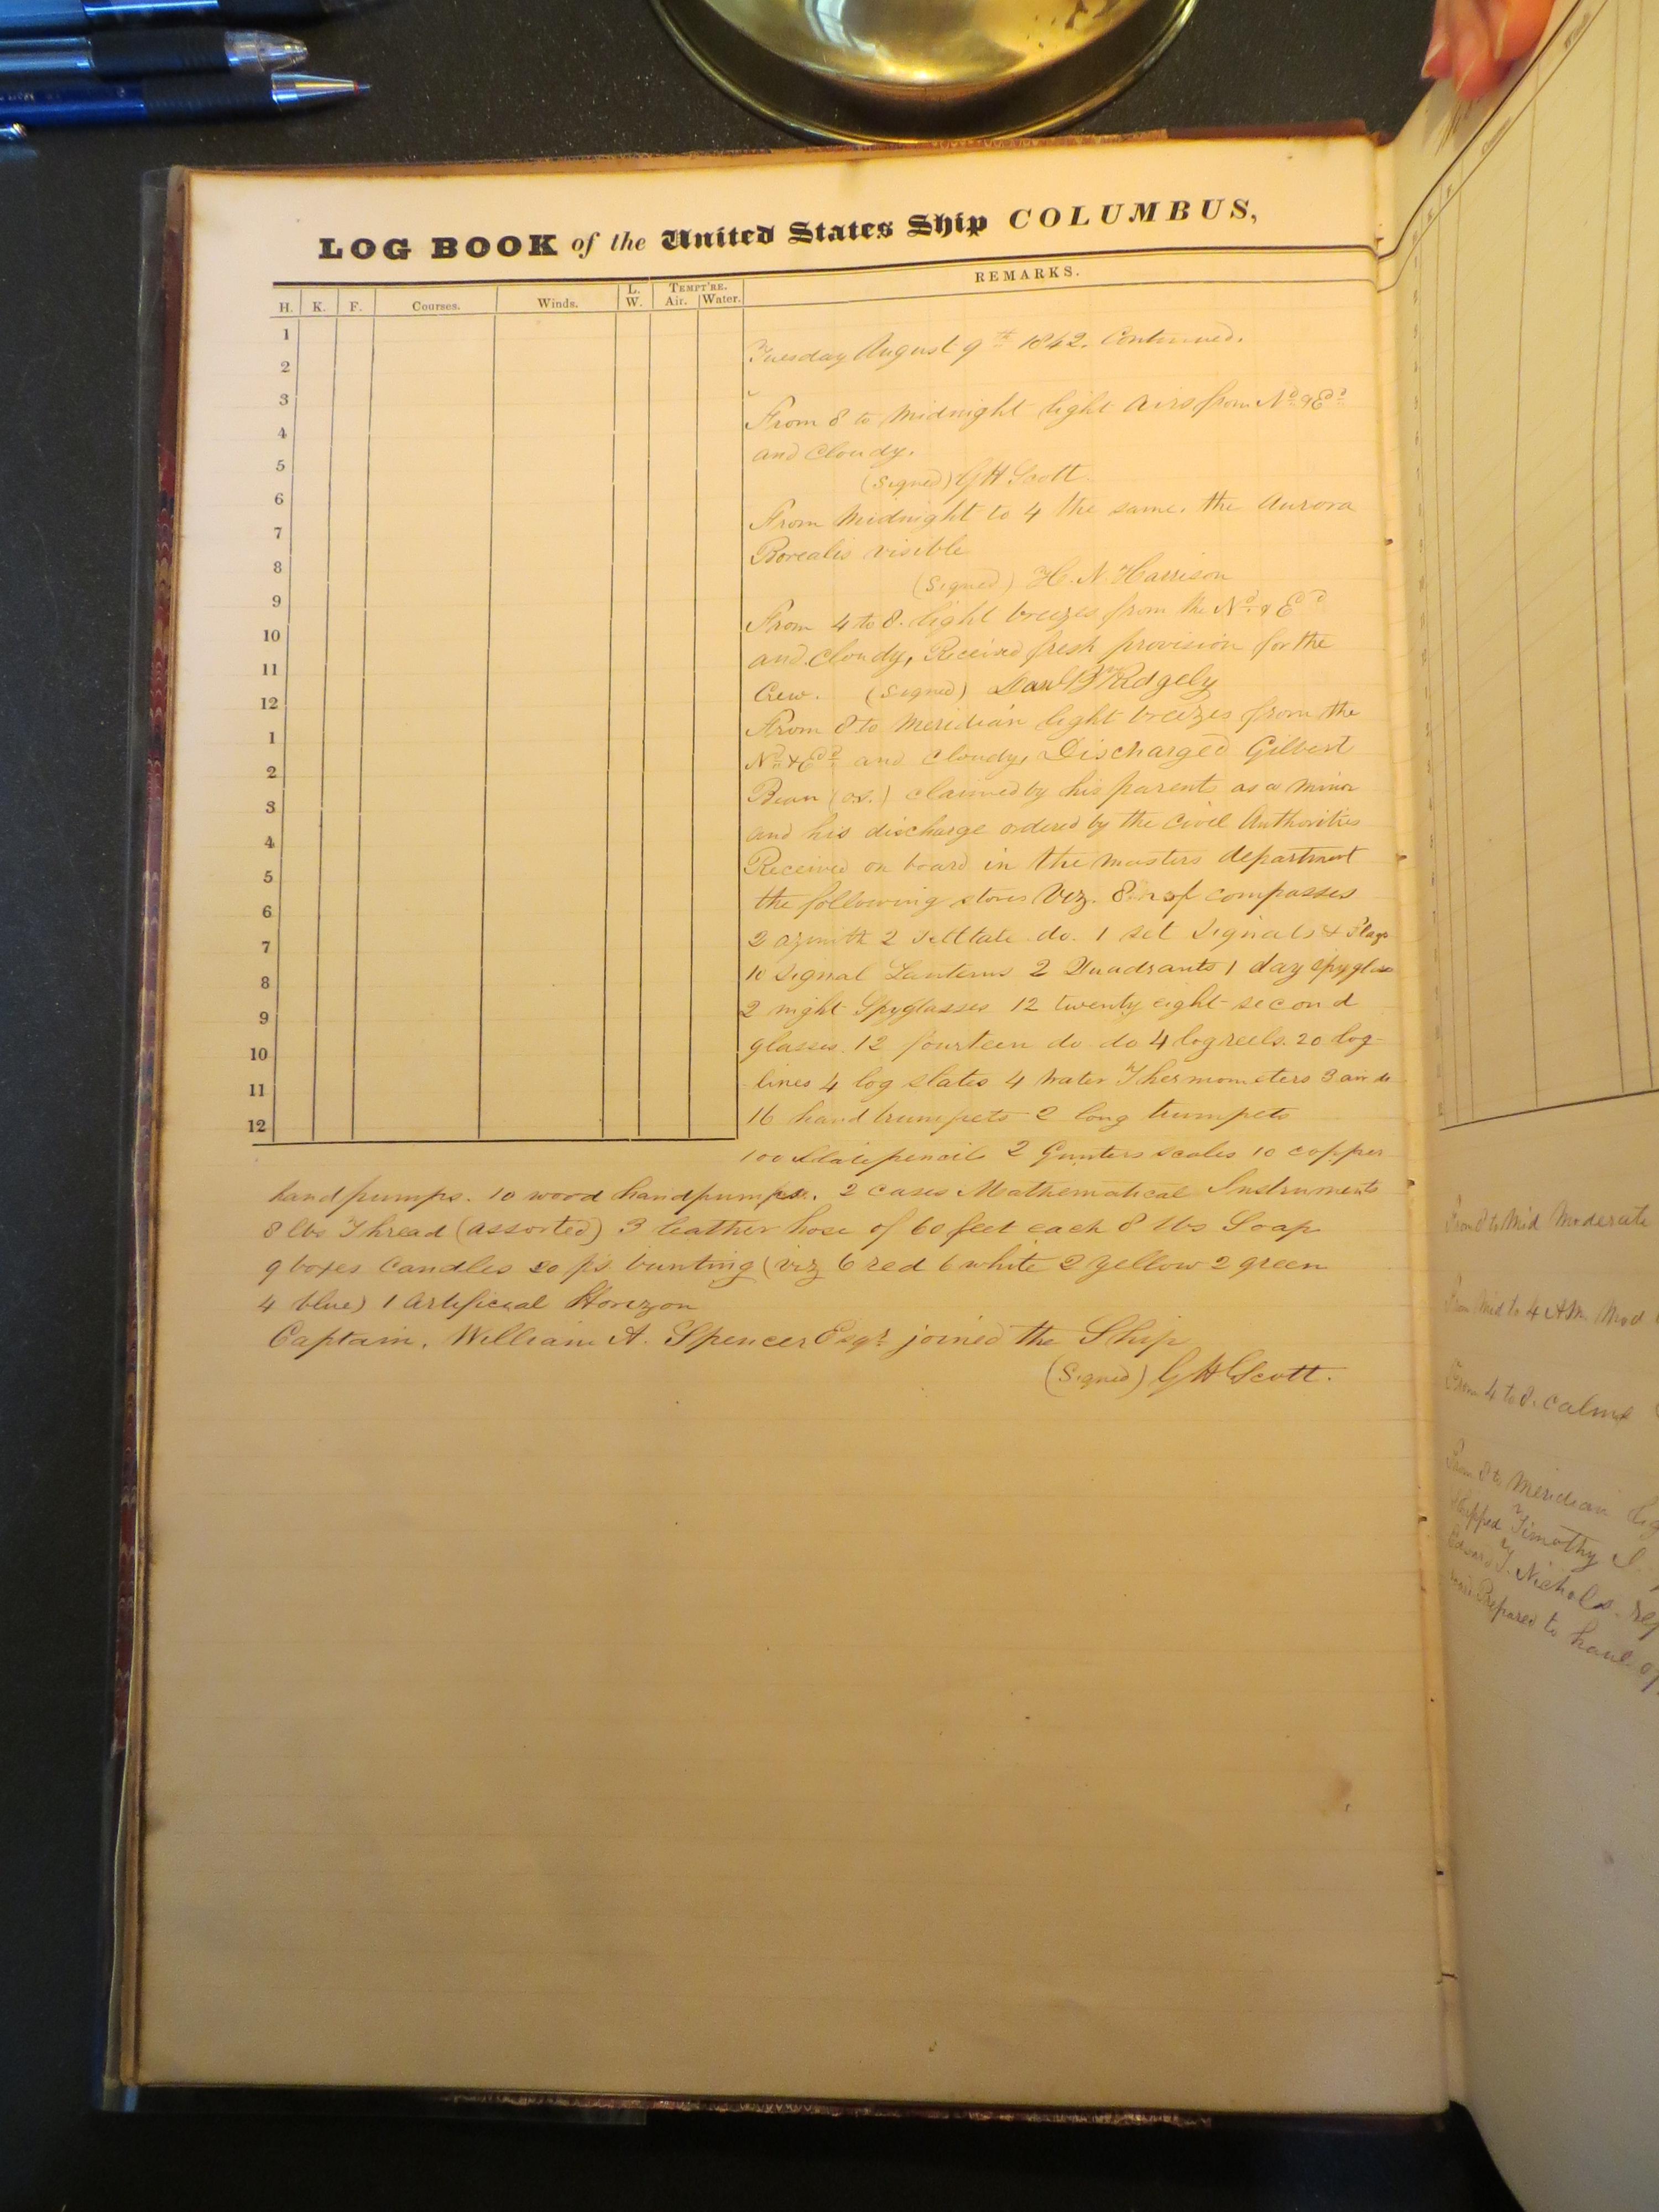 LOG BOOK of the United States Ship COLUMBUS,
H. K. F. Courses. Winds. L. W. TEMPT'RE. Air. Water. REMARKS.
1
2
3
4
5
6
7
8
9
10
11
12
1
2
3
4
5
6
7
8
9
10
11
12
Tuesday August 9th 1842. Continued.
From 8 to Midnight light Airs from Nd & Ed
and Cloudy.
(Signed) G H Scott
From Midnight to 4 the same. the Aurora
Borealis visible
(Signed) H. N. Harrison
From 4 to 8. light breezes from the Nd & Ed
and Cloudy, Received fresh provision for the
Crew. (Signed) Danl B Ridgely
From 8 to Meridian light breezes from the
Nd & Ed and cloudy, Discharged Gilbert
Bean (os.) claimed by his parents as a minor
and his discharge ordered by the Civil Authorities
Received on board in the masters department
the following stores Viz. 8 compasses
2 azimuth 2 Telltale do. 1 set Signals & Flags
10 Signal Lanterns 2 Quadrants 1 day Spyglass
2 night Spyglasses 12 twenty eight second
glasses. 12 fourteen do do 4 log reels. 20 log
lines 4 log slates 4 Water Thermometers 3 air do
16 hand trumpets 2 long trumpets
100 Slate pencils 2 Gunters scales 10 copper
handpumps. 10 wood handpumps. 2 cases Mathematical Instruments
8 lbs Thread (assorted) 3 leather hose of 60 feet each 8 lbs Soap
9 boxes Candles 20 ps bunting (viz 6 red 6 white 2 yellow 2 green
4 blue) 1 Artificial Horizon
Captain. William A. Spencer Esqr. joined the Ship
(Signed) G H Scott.
From 8 to Mid Moderate
From Mid to 4 AM. Mod
From 4 to 8. calms
From 8 to Meridian
Shipped Timothy
Edward T. Nichols.
Prepared to haul